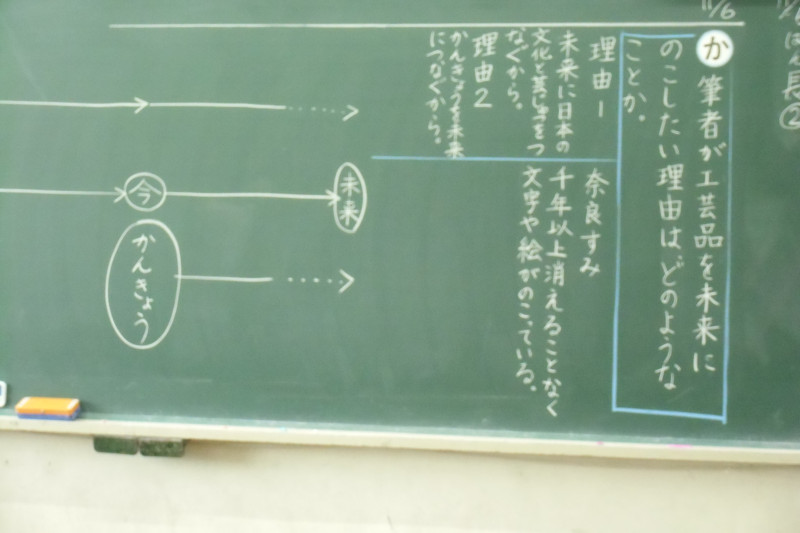 はん長②
11/6
か 筆者が工芸品を未来に
のこしたい理由は、どのような
ことか。
理由1
未来に日本の
文化と芸じゅつをつ
なぐから。
理由2
かんきょうを未来
につなぐから。
奈良すみ
千年以上消えることなく
文字や絵がのこっている。
未来
今
かんきょう